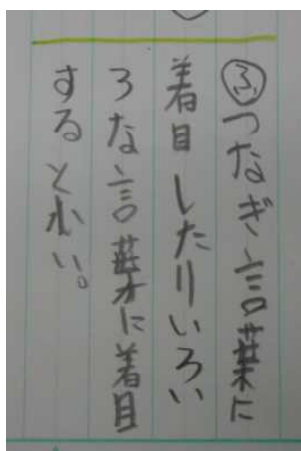 ふつなぎ言葉に
着目したりいろい
ろな言葉に着目
するとよい。